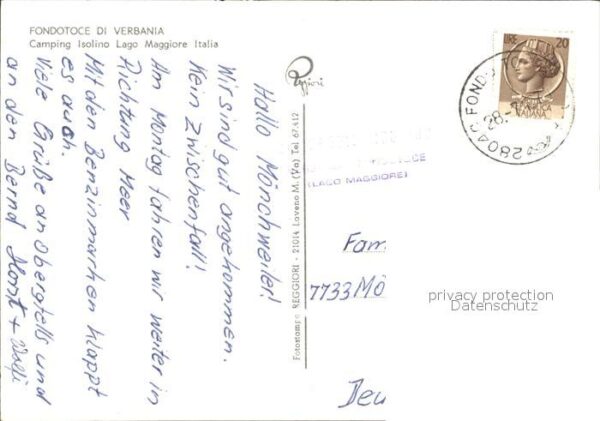 FONDOTOCE DI VERBANIA
Camping Isolino Lago Maggiore Italia
Hallo Mönchweiler!
Wir sind gut angekommen.
Kein Zwischenfall!
Am Montag fahren wir weiter in
Richtung Meer
Mit den Benzinmarken klappt
es auch.
Viele Grüße an Obergfells und
an den Bernd Horst +
Reggiori
Fotostampa REGGIORI - 21014 Laveno M. (Va) Tel. 67.412
(LAGO MAGGIORE)
LIRE 20
ITALIANA
28040 FONDOTOCE
28.
Fam
7733 Mö
Deu
privacy protection
Datenschutz